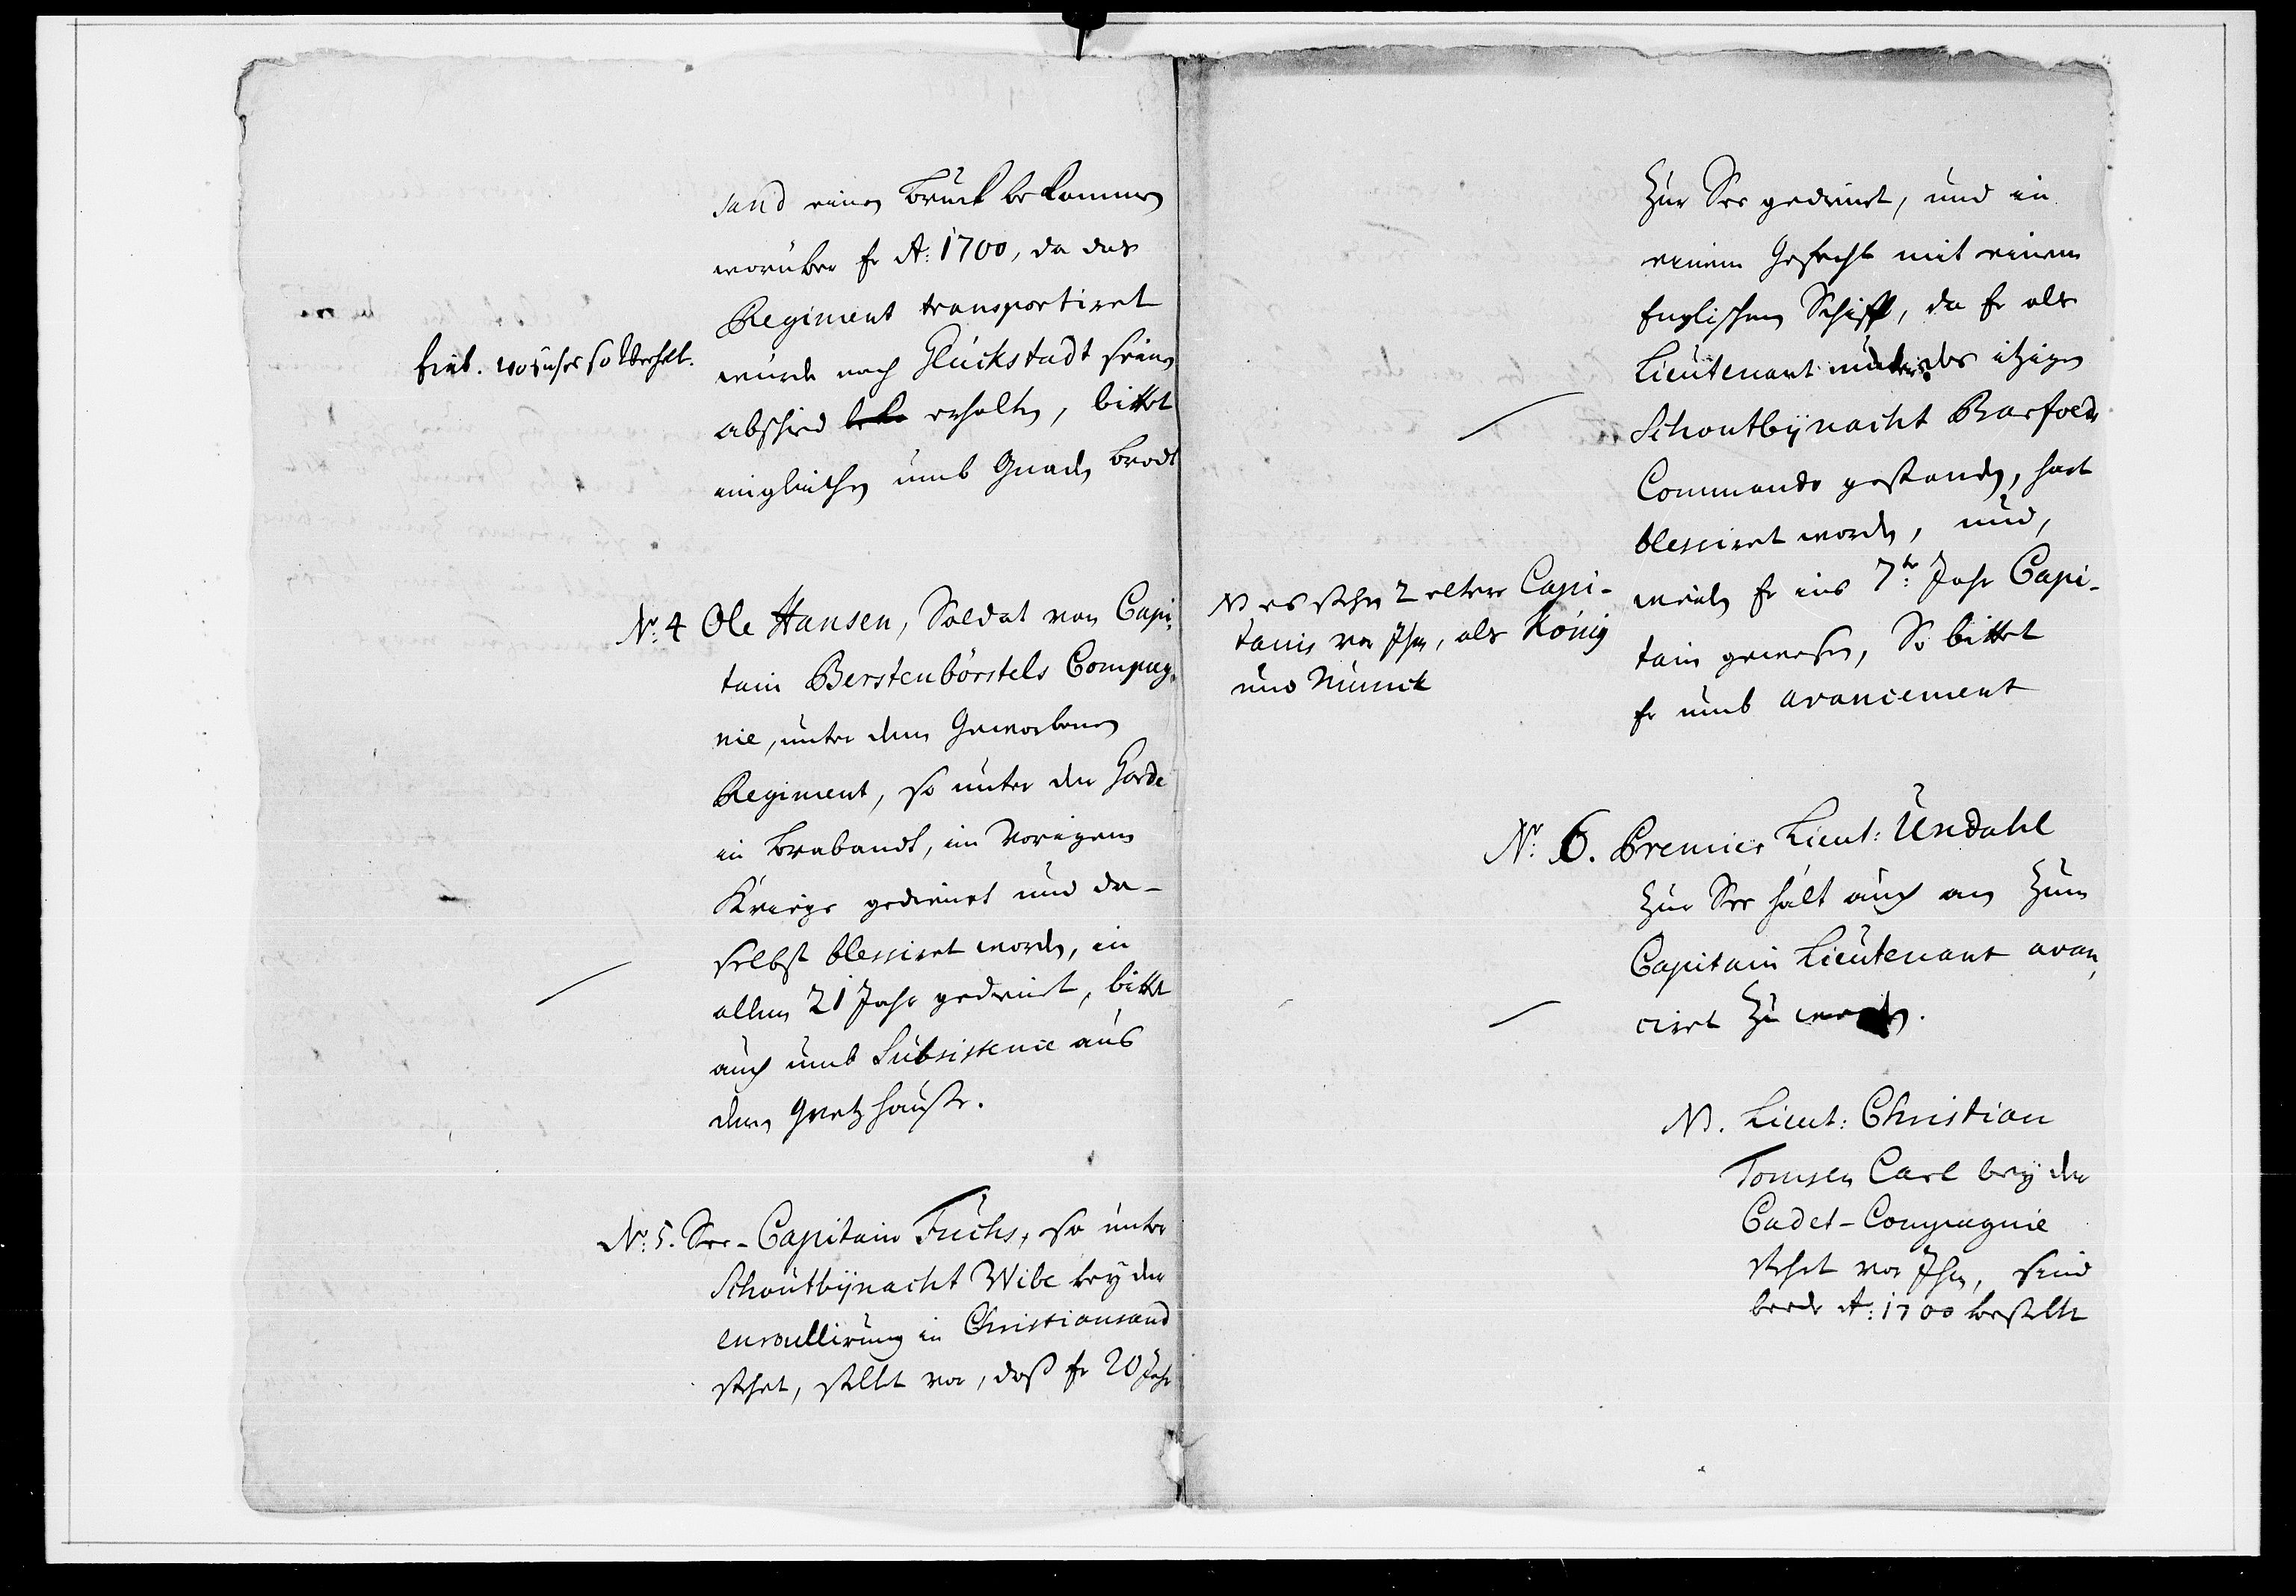 sand einen Bruck bekommen
worüber Er Aº: 1700, da das
Regiment transportiret
wurde nach Glückstadt seinen
abschied erhalten, bittet
imgleichen umb Gnaden brodt
fiat.
Nº: 4 Ole Hansen, Soldat von Capi-
tain Berstenbörstels Compag-
nie, unter dem Geworbenen
Regiment, so unter der Garde
in Brabandt, im Vorigem
Kriege gedienet und da-
selbst blessiret worden, in
allem 21 Jahr gedienet, bittet
auch umb Subsistence aus
dem Qvetzhause.
Nº: 5. See-Capitain Fuchs, so unter
Schoutbynacht Wibe bey der
enroullirung in Christiansand
stehet, stellet vor, daß Er 20 Jahr
zur See gedienet, und in
einem Gefecht mit einem
Englischen Schiff, da Er als
Lieutenant unter des itzigen
Schoutbynacht Barfoedt
Commando gestanden, hart
blessiret worden, und,
weilen Er ins 7te: Jahr Capi-
tain gewesen, So bittet
Er umb avancement
NB es stehen 2 eltere Capi-
tains vor Ihm, als König
und Munck
Nº: 6. Premier Lieut: Undahl
zur See hält auch an zum
Capitain Lieutenant avan-
ciret zu werden.
NB. Lieut: Christian
Tomsen Carl bey der
Cadet-Compagnie
stehet vor Ihm, sind
beede Aº: 1700 bestellt